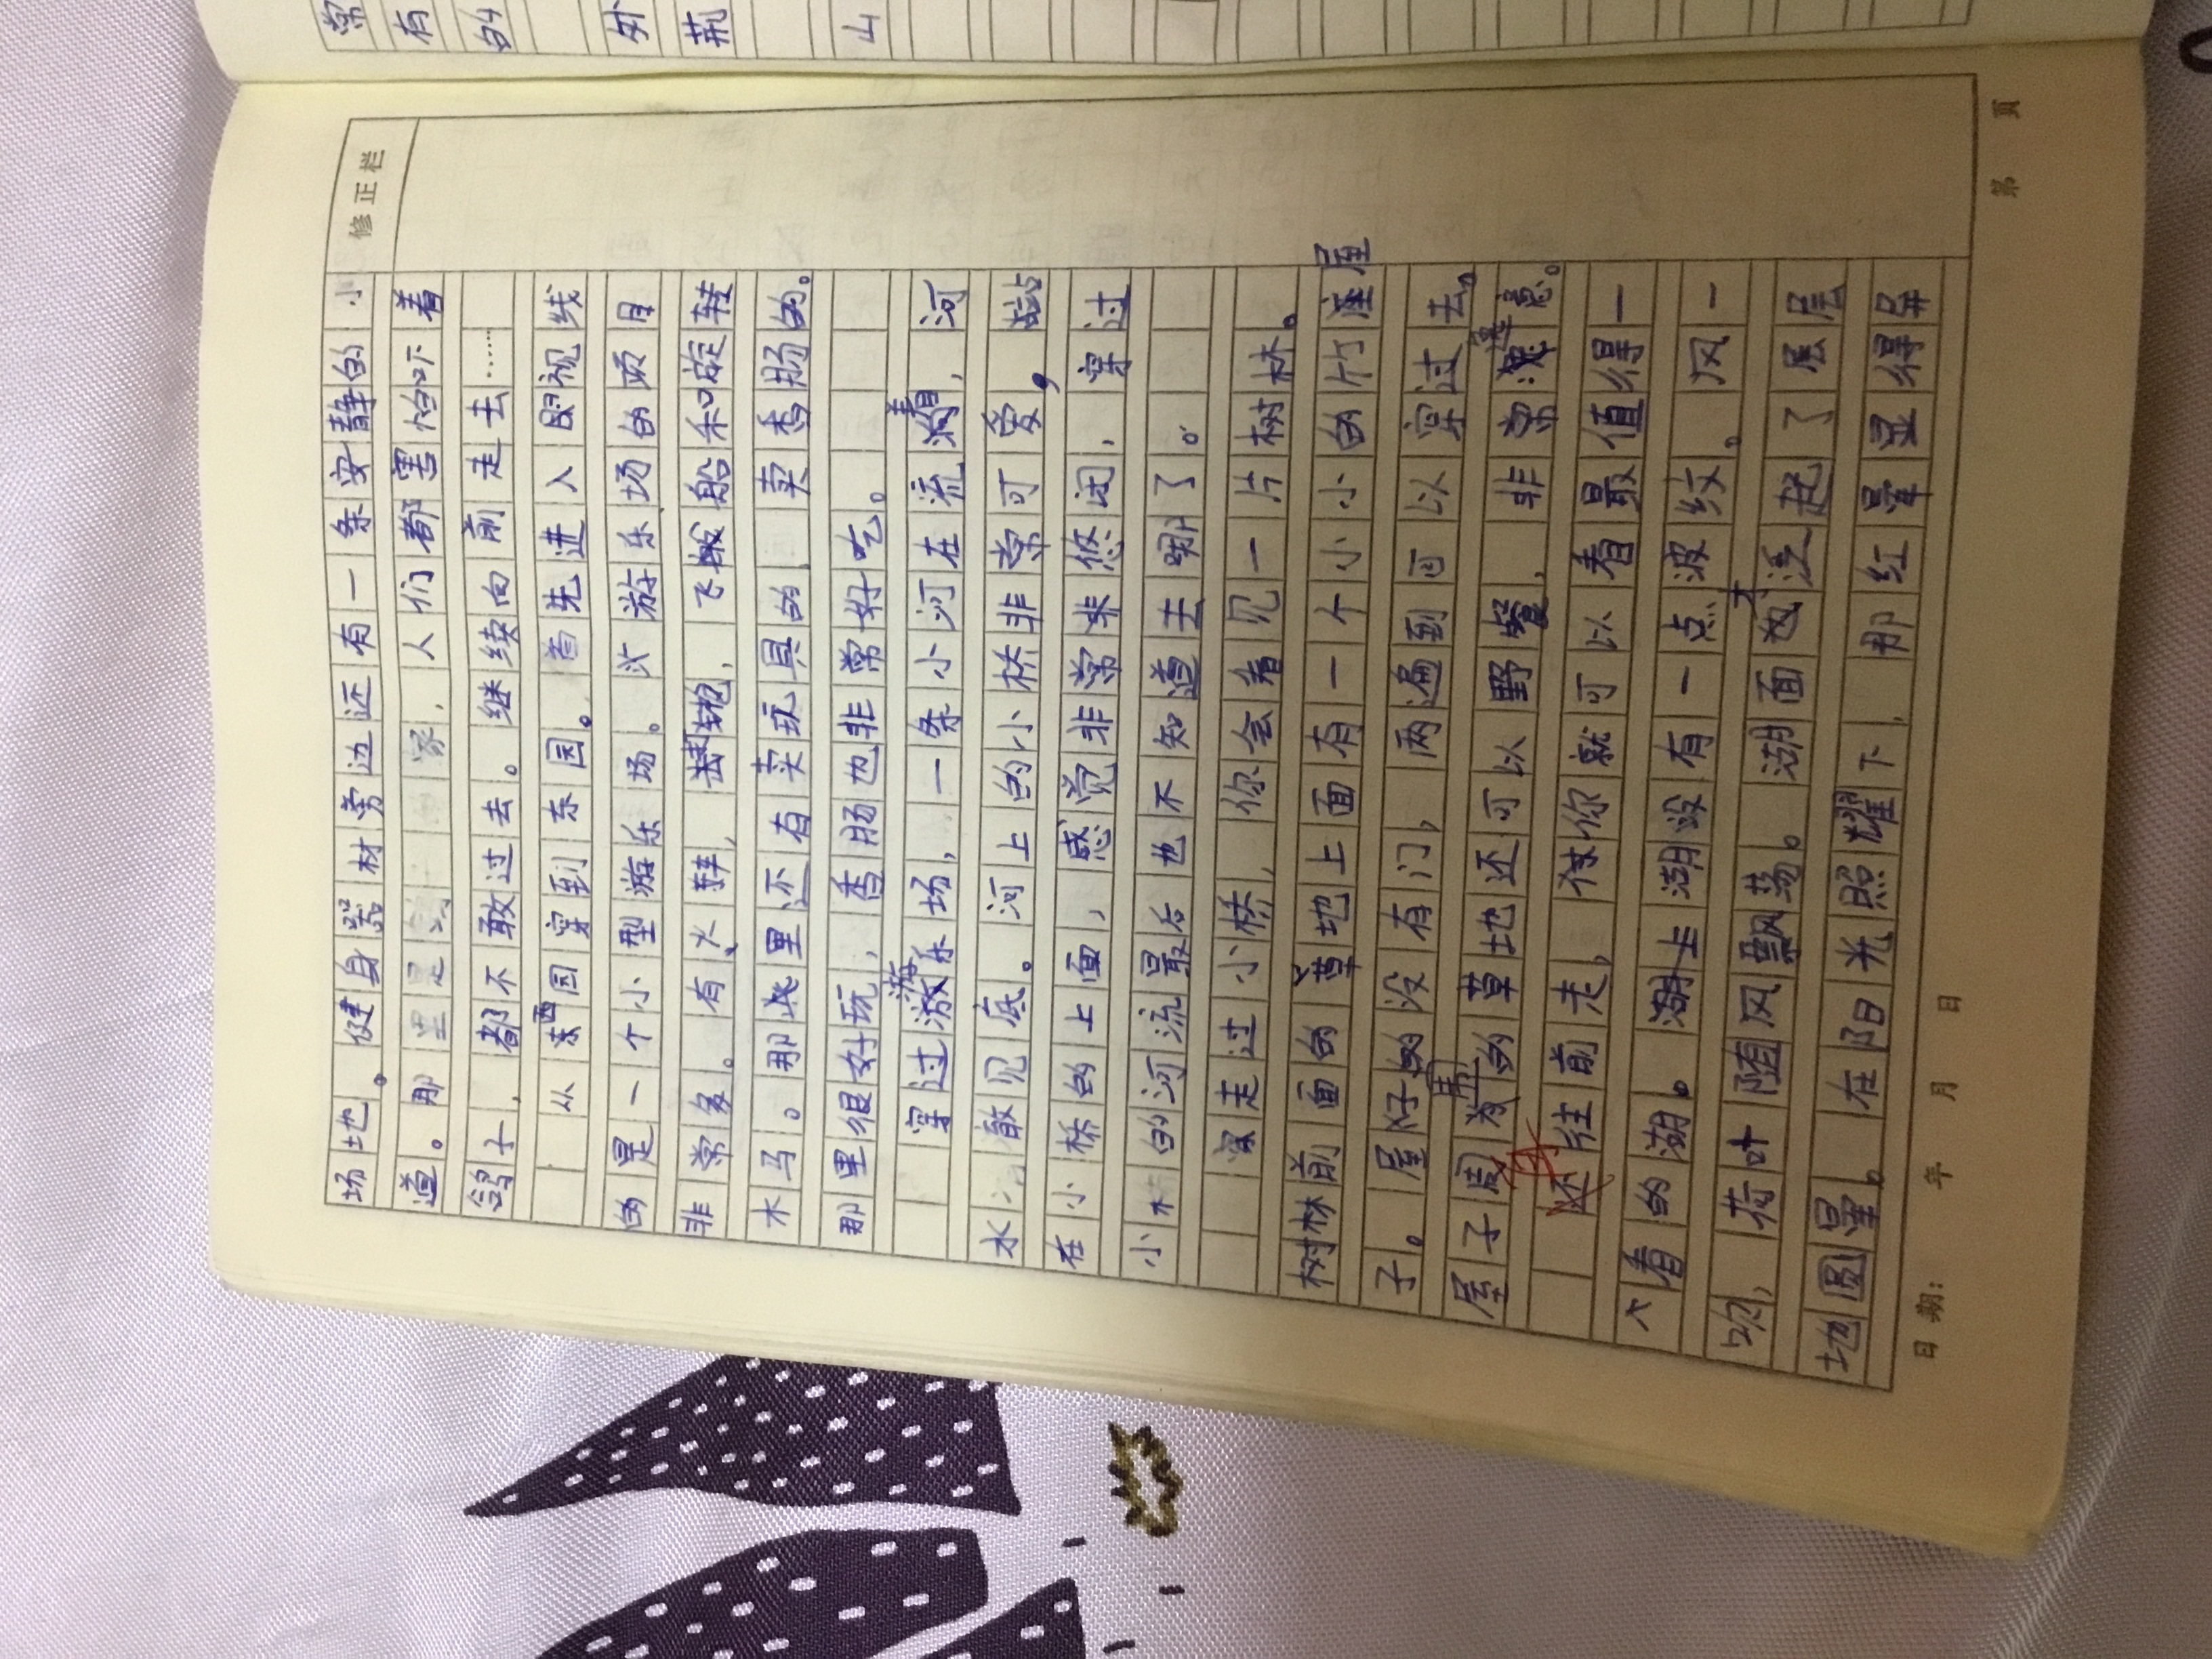 修正栏
场地。健身器材旁边还有一条安静的小
道。那里是 家，人们都害怕吓着
鸽子，都不敢过去。继续向前走去……
从西园穿到东园。首先进入眼视线
的是一个小型游乐场。兴游乐场的项目
非常多。有火 飞 船和旋转
木马。那此里还有卖玩具的，卖香肠的。
那里很好玩，香肠也非常好吃。
穿过游乐场，一条小河在流着，河
水 敝见底。河上的小桥非非常可爱，站
在小桥的上面，感觉非常非悠闲，穿过
小 的河流最后也不知道去哪了。
走过小桥，你会看见一片树林。
树林前面的草地上面有一个小小的竹座屋
子。屋子的没有门，两遍到可以穿过去。
屋子周围的草地还可以野餐，非常惬意。
在往前走，你就可以看最值得一
个看的湖。湖上湖没有一点波纹。风一
吹，荷叶随风飘荡。湖面才泛起了层层
地圆晕。在阳光照耀下，那红晕显得
日期： 年 月 日
第 页
常
有
的
外
荆
山